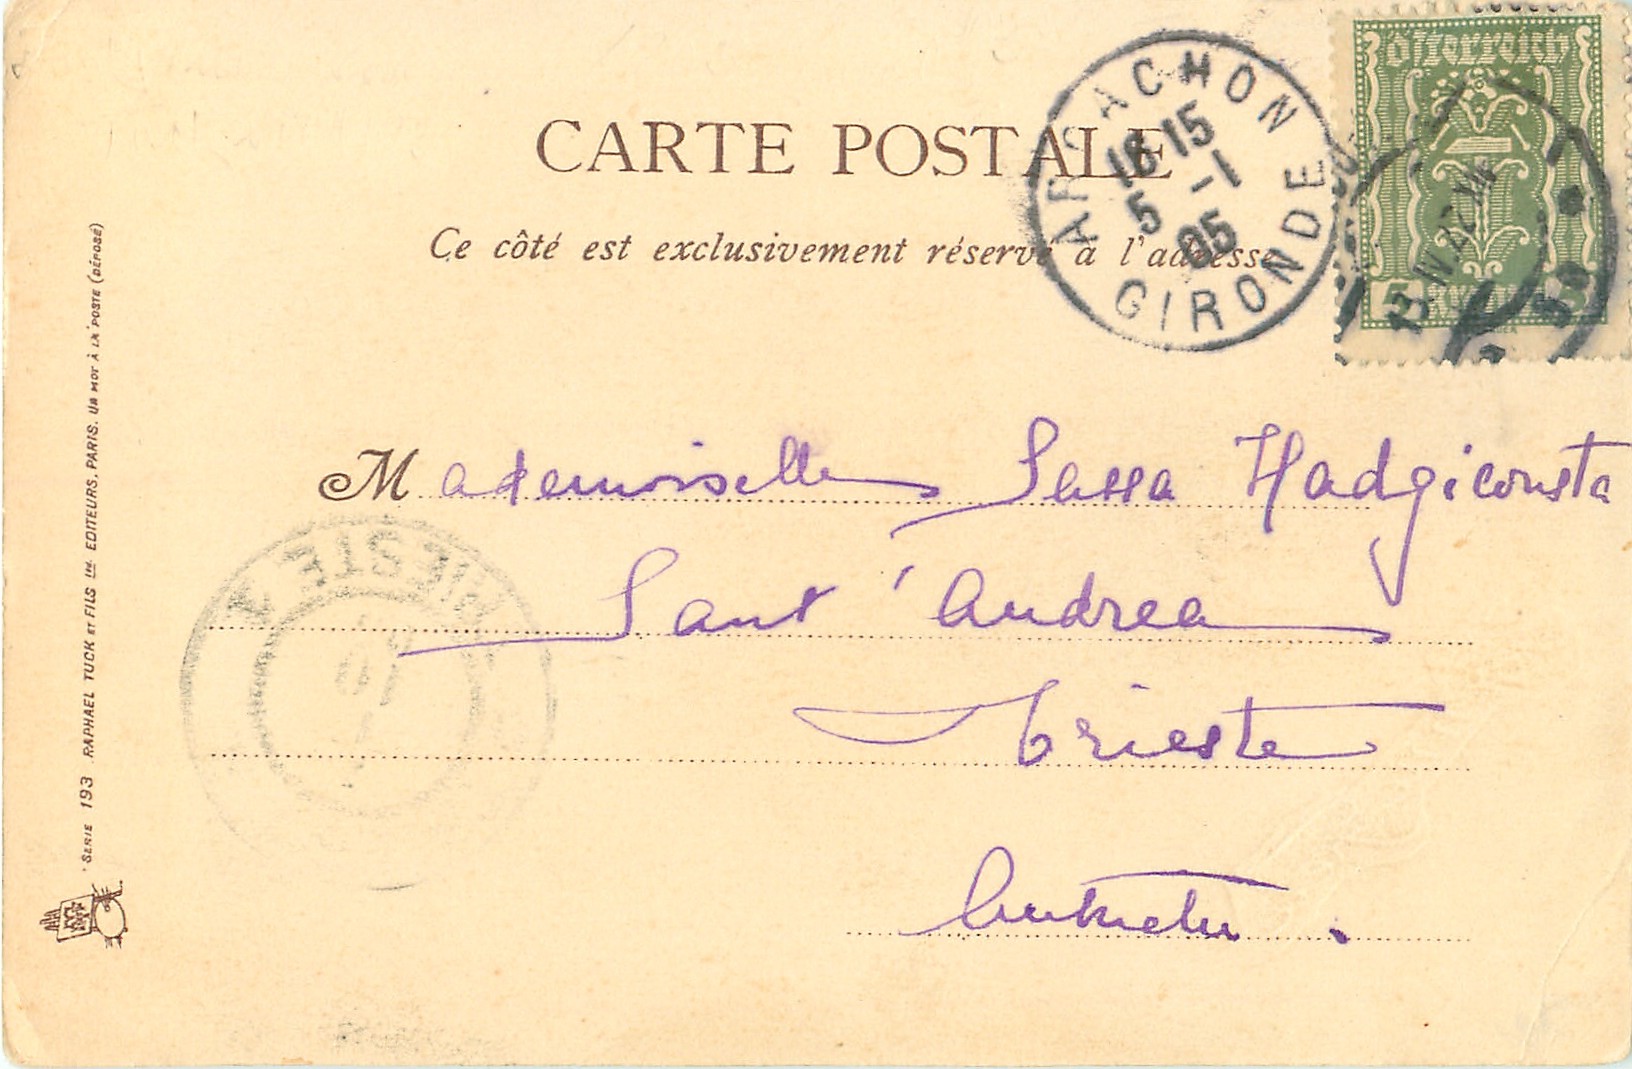 CARTE POSTALE
Ce côté est exclusivement réservé à l'adresse
ARCACHON
16 15
5 -1
05
GIRONDE
Österreich
1
5 5
13.IV.22
Mademoiselle Sassa Hadgiconsta
Sant' Andrea
Trieste
Autriche.
TRIESTE
10
SERIE 193 RAPHAEL TUCK ET FILS LTD. EDITEURS, PARIS. UN MOT À LA POSTE (DÉPOSÉ)